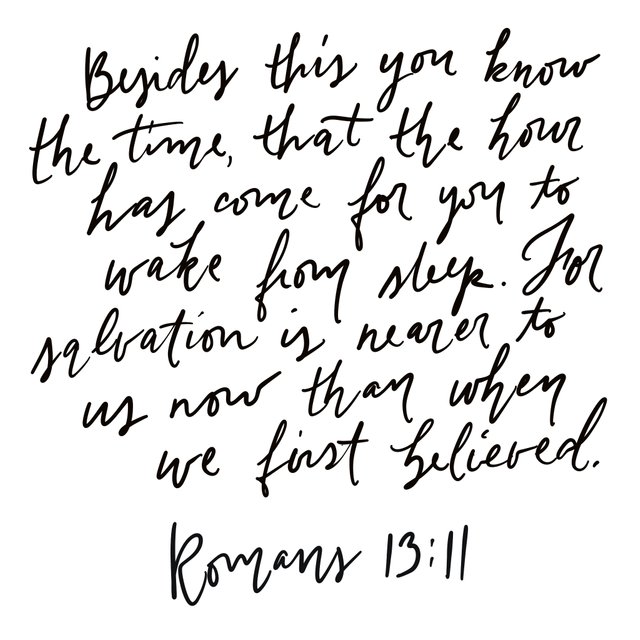 Besides this you know
the time, that the hour
has come for you to
wake from sleep. For
salvation is nearer to
us now than when
we first believed.
Romans 13:11